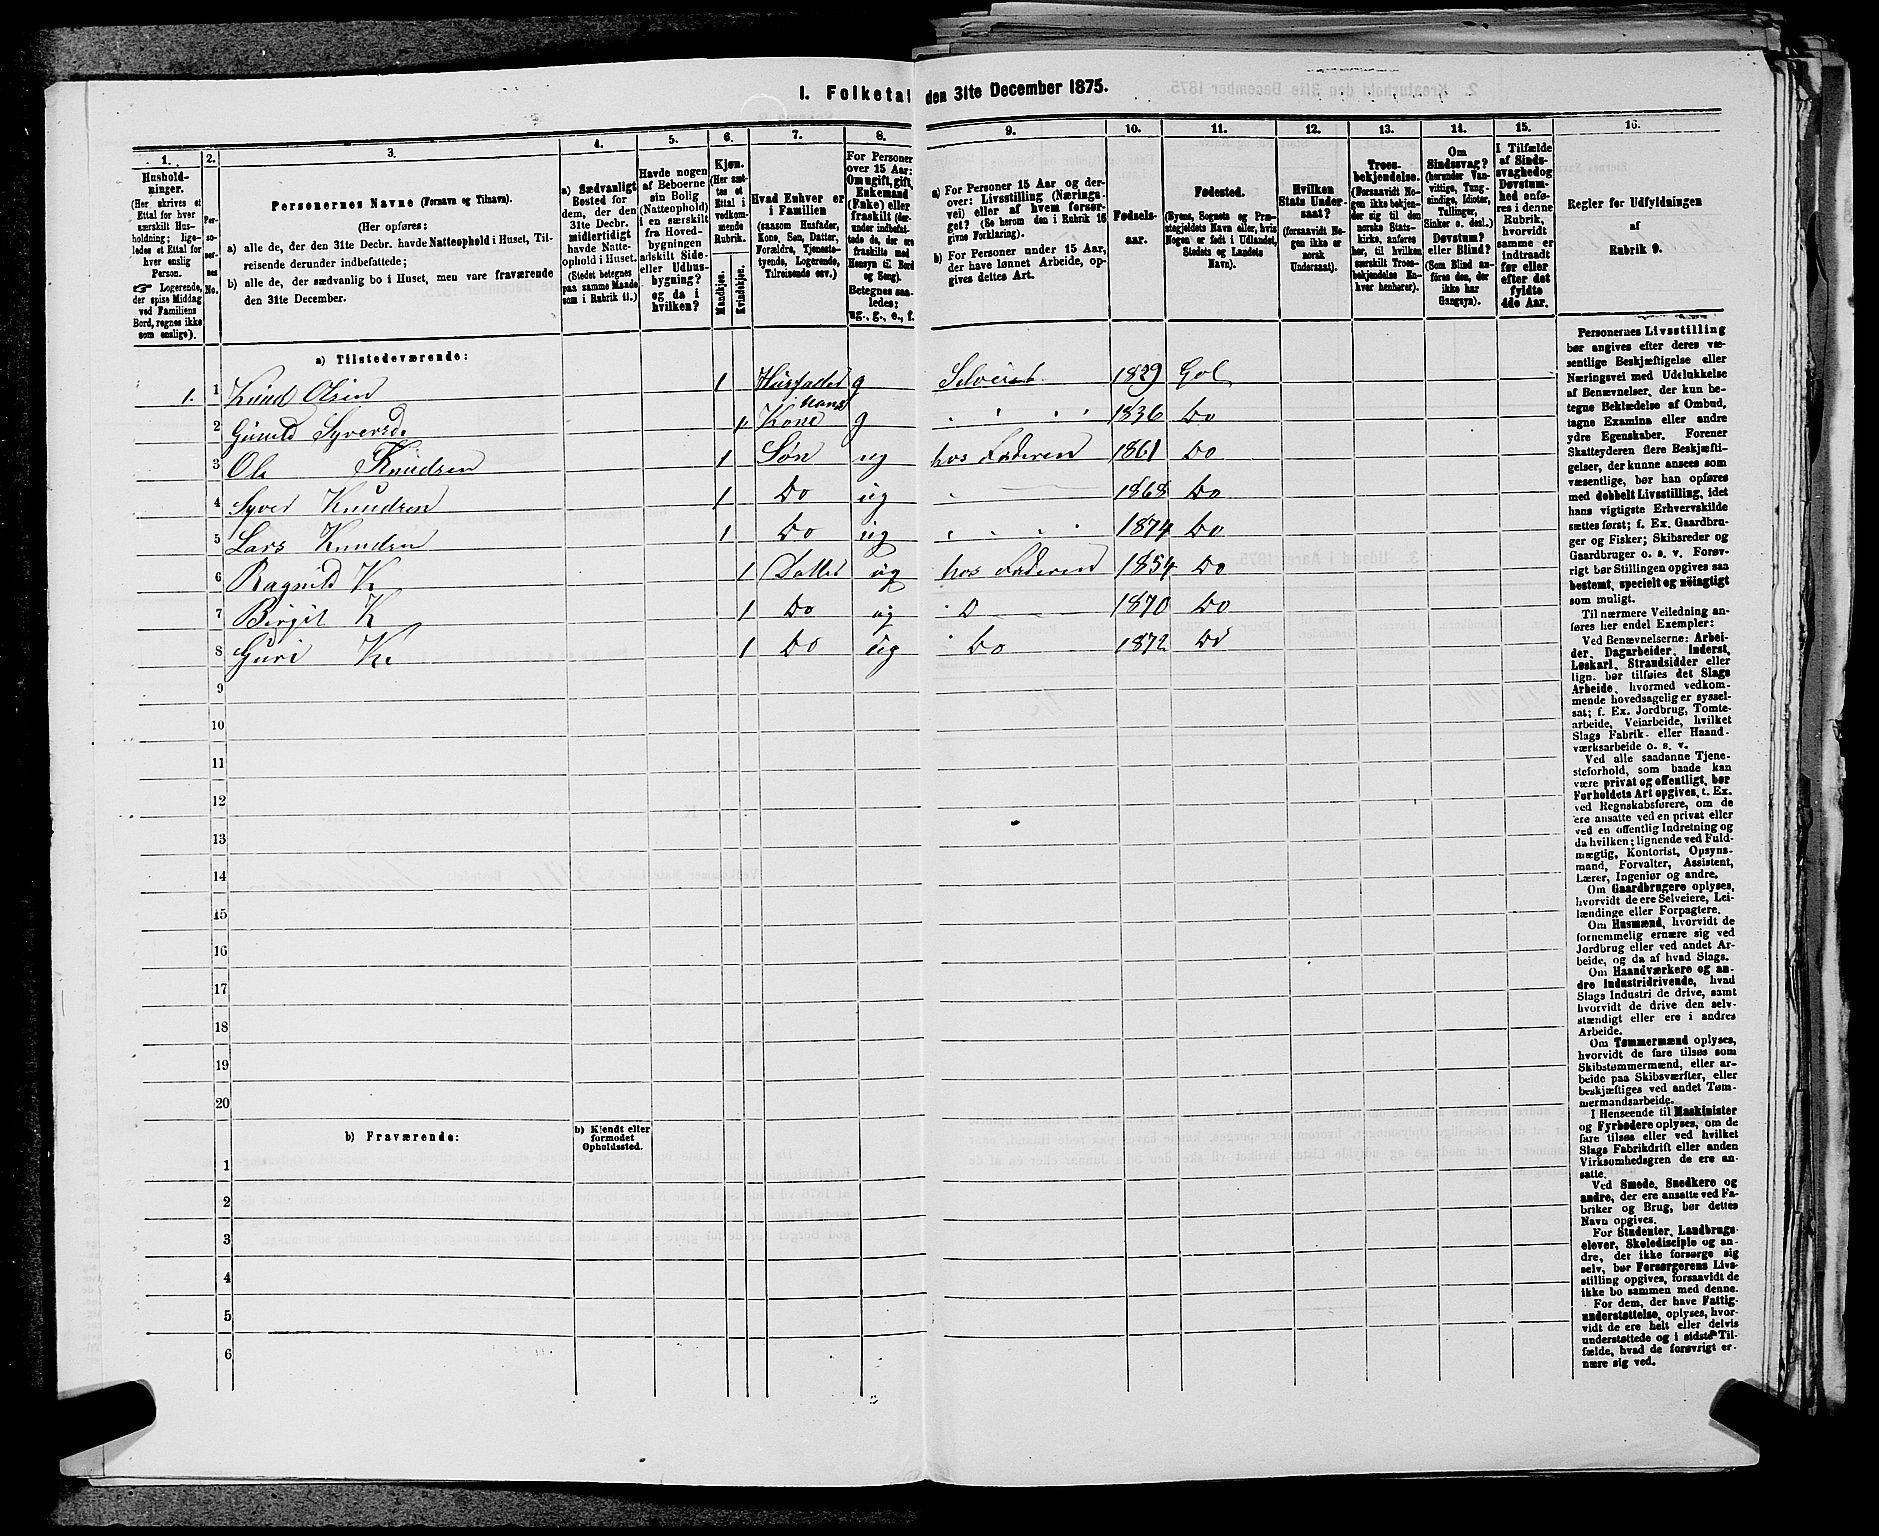 I. Folketal den 31te December 1875.
1. 2. 3. 4. 5. 6. 7. 8. 9. 10. 11. 12. 13. 14. 15. 16.
Husholdninger.
(Her skrives et
Ettal for hver
særskilt Husholdning;
ligeledes et Ettal for
hver enslig
Person.
☞ Logerende,
der spise Middag
ved Familiens
Bord, regnes ikke
som enslige).
Personernes No.
Personernes Navne (Fornavn og Tilnavn).
(Her opføres:
a) alle de, der den 31te Decbr. havde Natteophold i Huset, Tilreisende
derunder indbefattede;
b) alle de, der sædvanlig bo i Huset, men vare fraværende
den 31te December.
a) Sædvanligt
Bosted for
dem, der den
31te Decbr.
midlertidigt
havde Natteophold
i Huset.
(Stedet betegnes
paa samme Maade
som i Rubrik 11.)
Havde nogen
af Beboerne
sin Bolig
(Natteophold)
i en særskilt
fra Hovedbygningen
adskilt Side-
eller Udhusbygning?
og da i
hvilken?
Kjøn.
(Her sættes
et
Ettal i
vedkommende
Rubrik.
Mandkjøn.
Kvindekjøn.
Hvad Enhver er
i Familien
(saasom Husfader,
Kone, Søn, Datter,
Forældre, Tjenestetyende,
Logerende,
Tilreisende osv.)
For Personer
over 15 Aar:
Om ugift, gift,
Enkemand
(Enke) eller
fraskilt (derunder
indbefattede
de, der ere
fraskilte med
Hensyn til Bord
og Seng).
Betegnes saaledes:
ug., g., e., f.
a) For Personer 15 Aar og derover:
Livsstilling (Næringsvei)
eller af hvem forsørget?
(Se herom den i Rubrik 16
givne Forklaring).
b) For Personer under 15 Aar,
der have lønnet Arbeide, opgives
dettes Art.
Fødselsaar.
Fødested.
(Byens, Sognets og Præstegjeldets
Navn eller, hvis
Nogen er født i Udlandet,
Stedets og Landets
Navn).
Hvilken
Stats Undersaat?
(forsaavidt Nogen
ikke er
norsk
Undersaat).
Troesbekjendelse.
(Forsaavidt Nogen
ikke bekjender
sig til den
norske Statskirke,
anføres
her, til hvilken
særskilt Troesbekjendelse
Enhver
henhører).
Om
Sindssvag?
(herunder Vanvittige,
Tungsindige,
Idioter,
Tullinger,
Sinker o. desl.).
Døvstum?
eller Blind?
(Som Blind anføres
den, der
ikke har
Gangsyn).
I Tilfælde
af Sindssvaghed
og
Døvstumhed
anføres
i denne
Rubrik,
hvorvidt
samme er
indtraadt
før eller
efter det
fyldte
4de Aar.
Regler for Udfyldningen
af
Rubrik 9.
a) Tilstedeværende:
1. 1 Knud Olsen 1 Husfader g Selveier 1829 Gol
2 Gunild Syversd. " Kone hans g " " " " 1836 Do
3 Ole Knudsen 1 Søn ug hos Faderen 1861 Do
4 Syver Knudsen 1 Do ug " 1868 Do
5 Lars Knudsen 1 Do ug " " " " 1874 Do
6 Ragnild K 1 Datter ug hos Faderen 1854 Do
7 Birgit K 1 Do ug " D 1870 Do
8 Guri K. 1 Do ug " Do 1872 Do
9
10
11
12
13
14
15
16
17
18
19
20
b) Fraværende:
b) Kjendt eller
formodet
Opholdssted.
1
2
3
4
5
6
Personernes Livsstilling
bør angives efter deres væsentlige
Beskjæftigelse eller
Næringsvei med Udelukkelse
af Benævnelser, der kun betegne
Beklædelse af Ombud,
tagne Examina eller andre
ydre Egenskaber. Forener
Skatteyderen flere Beskjæftigelser,
der kunne ansees som
væsentlige, bør han opføres
med dobbelt Livsstilling, idet
hans vigtigste Erhvervskilde
sættes først; f. Ex. Gaardbruger
og Fisker; Skibsreder og
Gaardbruger o. s. v. Forøvrigt
bør Stillingen opgives saa
bestemt, specielt og nöiagtigt
som muligt.
Til nærmere Veiledning anføres
her endel Exempler:
Ved Benævnelserne: Arbeider,
Dagarbeider, Inderst,
Løskarl, Strandsidder eller
lign. bør tilføies det Slags
Arbeide, hvormed vedkommende
hovedsagelig er sysselsat;
f. Ex. Jordbrug, Tomtearbeide,
Veiarbeide, hvilket
Slags Fabrik- eller Haandværksarbeide
o. s. v.
Ved alle saadanne Tjenesteforhold,
som baade kan
være privat og offentligt, bør
Forholdets Art opgives, t. Ex.
ved Regnskabsførere, om de
ere ansatte ved en privat eller
ved en offentlig Indretning og
da hvilken; lignende ved Fuldmægtig,
Kontorist, Opsynsmand,
Forvalter, Assistent,
Lærer, Ingeniør og andre.
Om Gaardbrugere oplyses,
hvorvidt de ere Selveiere, Leilændinge
eller Forpagtere.
Om Husmænd, hvorvidt de
fornemmelig ernære sig ved
Jordbrug eller ved andet Arbeide,
og da af hvad Slags.
Om Haandværkere og andre
industridrivende, hvad
Slags Industri de drive, samt
hvorvidt de drive den selvstændigt
eller ere i andres
Arbeide.
Om Tømmermænd oplyses,
hvorvidt de fare tilsøs som
Skibstømmermænd, eller arbeide
paa Skibsværfter, eller
beskjæftiges ved andet Tømmermandsarbeide.
I Henseende til Maskinister
og Fyrbødere oplyses, om de
fare tilsøs eller ved hvilket
Slags Fabrikdrift eller anden
Virksomhedsgren de ere ansatte.
Ved Smede, Snedkere og
andre, der ere ansatte ved Fabriker
og Brug, bør dettes
Navn opgives.
For Studenter, Landbrugselever,
Skoledisciple og andre,
der ikke forsørge sig
selv, bør Forsørgerens Livsstilling
opgives, forsaavidt de
ikke bo sammen med denne.
For dem, der have Fattigunderstøttelse,
oplyses, hvorvidt
de ere helt eller delvis
understøttede og i sidste Tilfælde,
hvad de forøvrigt ernære
sig ved.